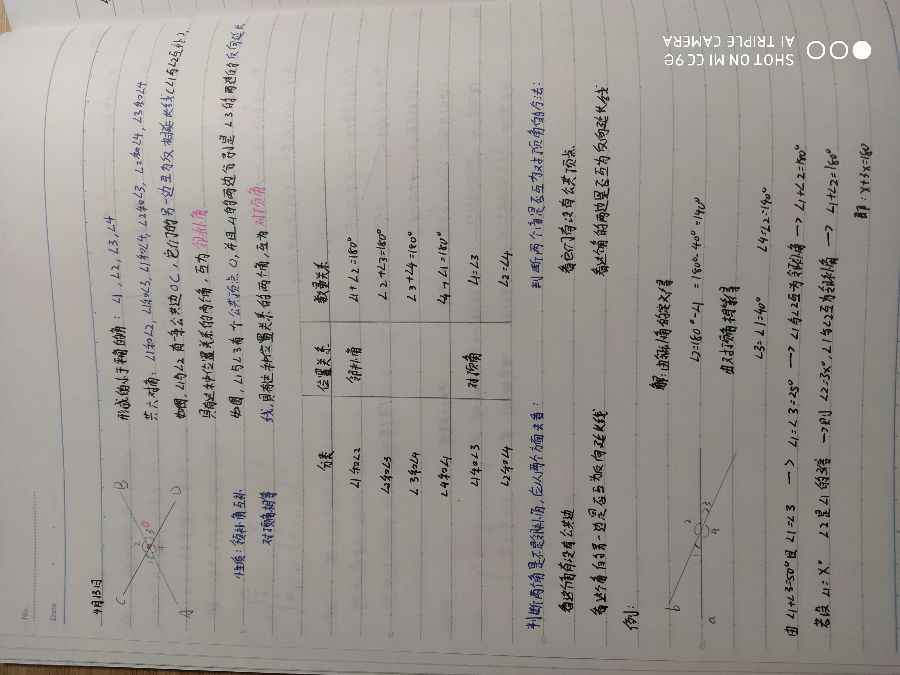 No.
Date
4月13日
C
B
A
D
形成的小于平角的角：∠1，∠2，∠3，∠4
共六对角：∠1和∠2，∠1和∠3，∠1和∠4，∠2和∠3，∠2和∠4，∠3和∠4
如图，∠1与∠2有一条公共边OC，它们的另一边互为反向延长线(∠1与∠2互补)，
具有这种位置关系的两个角，互为邻补角
如图，∠1与∠3有一个公共顶点O，并且∠1的两边分别是∠3的两边的反向延长
线，具有这种位置关系的两个角，互为对顶角
性质：邻补角互补
对顶角相等
分类 位置关系 数量关系
∠1和∠2 邻补角 ∠1+∠2=180°
∠2和∠3 ∠2+∠3=180°
∠3和∠4 ∠3+∠4=180°
∠4和∠1 ∠4+∠1=180°
∠1和∠3 对顶角 ∠1=∠3
∠2和∠4 ∠2=∠4
判断两个角是不是邻补角，它从两个方面去看：
看这个角有没有公共边
看这个角的另一边是否互为反向延长线
判断两个角是否互为对顶角的方法：
看它们有没有公共顶点
看这个角的两边是否互为反向延长线
例：
b
a
解：由邻补角的定义得
∠2=180°-∠1=180°-40°=140°
由对顶角相等得
∠3=∠1=40° ∠4=∠2=140°
由∠1+∠3=50°且∠1=∠3 → ∠1=∠3=25° → ∠1与∠2互为邻补角 → ∠1+∠2=180°
若设∠1=x° ∠2是∠1的3倍 → 则∠2=3x°，∠1与∠2互为邻补角 → ∠1+∠2=180°
即：x+3x=180
SHOT ON MI CC 9e
AI TRIPLE CAMERA